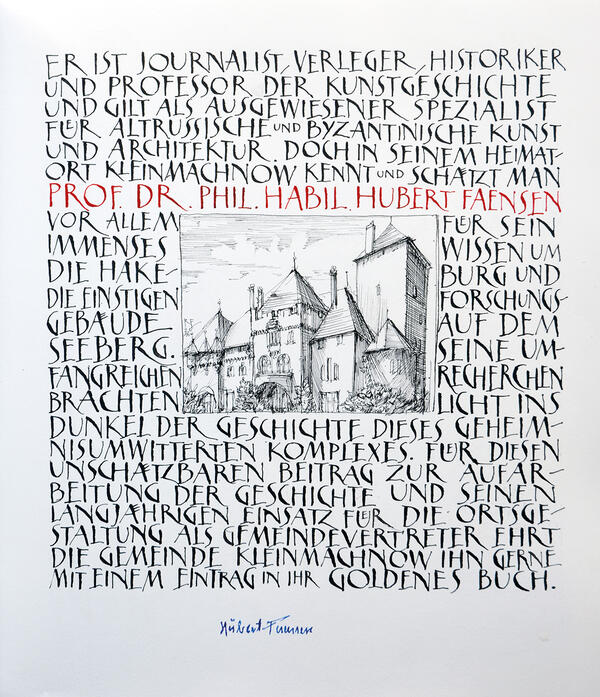 ER IST JOURNALIST, VERLEGER, HISTORIKER
UND PROFESSOR DER KUNSTGESCHICHTE
UND GILT ALS AUSGEWIESENER SPEZIALIST
FÜR ALTRUSSISCHE UND BYZANTINISCHE KUNST
UND ARCHITEKTUR. DOCH IN SEINEM HEIMAT-
ORT KLEINMACHNOW KENNT UND SCHÄTZT MAN
PROF. DR. PHIL. HABIL. HUBERT FAENSEN
VOR ALLEM FÜR SEIN
IMMENSES WISSEN UM
DIE HAKE- BURG UND
DIE EINSTIGEN FORSCHUNGS-
GEBÄUDE AUF DEM
SEEBERG. SEINE UM-
FANGREICHEN RECHERCHEN
BRACHTEN LICHT INS
DUNKEL DER GESCHICHTE DIESES GEHEIM-
NISUMWITTERTEN KOMPLEXES. FÜR DIESEN
UNSCHÄTZBAREN BEITRAG ZUR AUFAR-
BEITUNG DER GESCHICHTE UND SEINEN
LANGJÄHRIGEN EINSATZ FÜR DIE ORTSGE-
STALTUNG ALS GEMEINDEVERTRETER EHRT
DIE GEMEINDE KLEINMACHNOW IHN GERNE
MIT EINEM EINTRAG IN IHR GOLDENES BUCH.
Hubert Faensen